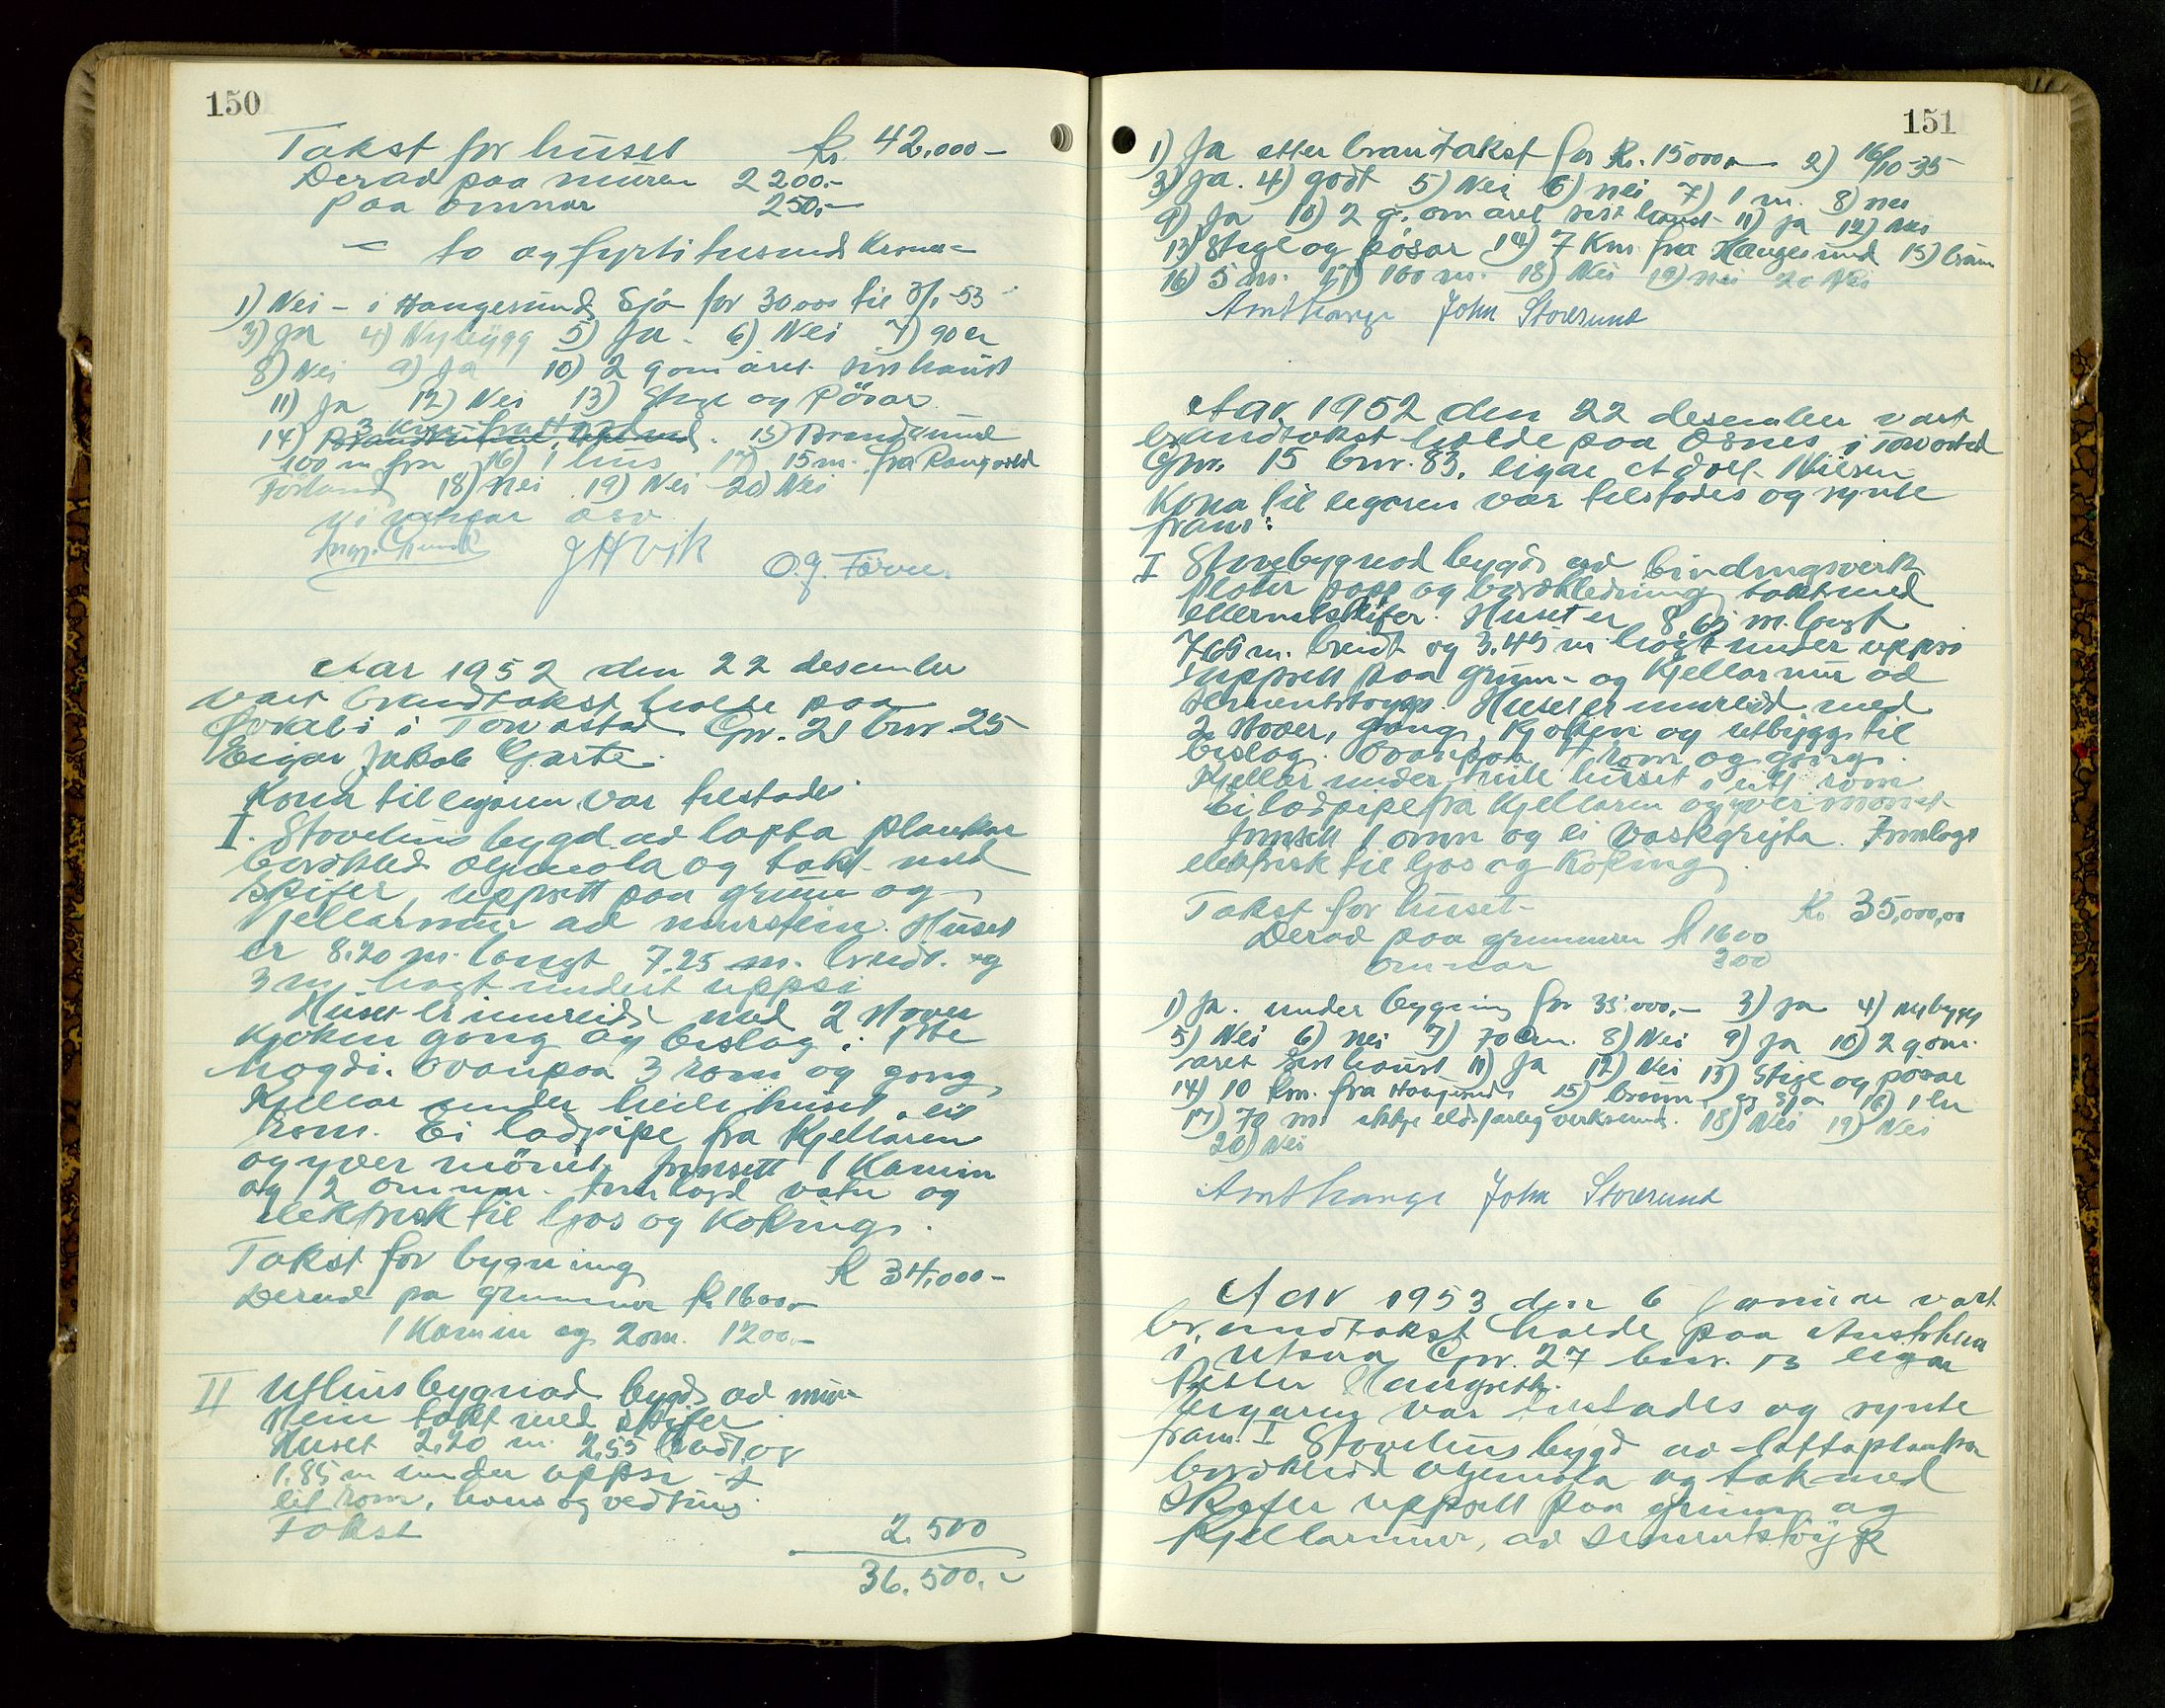 150
Takst for huset kr. 42.000 –
Derav paa muren 2200.–
paa omnar 250.–
– to og fyrti tusund kroner –
1) Nei – i Haugesund Sjø for 30000 til 3/1-53
3) Ja 4) Nybygg 5) Ja. 6) Nei 7) 90 cm
8) Nei 9) Ja 10) 2 g om året sist haust
11) Ja 12) Nei 13) Stige og Pösar
3 km fra
14) 15) Brand
100 m fra 16) i hus 17) 15 m. fra
18) Nei 19) Nei 20) Nei
osv
J H Vik O. J. Förre.
Aar 1952 den 22 desember
vart brandtakst halde paa
i Torvastad Gnr. 21 bnr. 25
Eigar Jakob Garte.
Kona til eigaren var tilstades
I. Stovehus bygd ad lafta plankar
bordkled oljemala og takt med
skifer, uppsett paa grunn og
kjellarmur ad murstein. Huset
er 8.20 m. langt 7.25 m. breidt og
3 m. høgt undert uppsi
Huset er innreidt med 2 stover
kjøken gong og bislag i 1ste
høgdi. Ovanpaa 3 rom og gong
Kjellar under heile huset, eit
rom. Ei ladpipe fra Kjellaren
og yver mönet, Innsett 1 Kamin
og 2 omnar. Innlagd vatn og
elektrisk til ljos og koking.
Takst for bygning kr 34.000 –
Derad pa grunnmur kr. 1600.–
1 Kamin og 2 om. 1200.–
II Uthusbygnad bygd ad mur–
stein takt med skifer
Huset 2,20 m. 2,55 bredt og
1.85 m under uppsi –
eit rom, høns og vedhus.
Takst 2.500
36.500.–
151
1) Ja etter brandtakst for kr. 15000.– 2) 16/10-35
3) Ja. 4) godt 5) Nei 6) nei 7) 1 m. 8) nei
9) Ja 10) 2 g. om året sist haust 11) ja 12) Nei
13) Stige og pösar 14) 7 km fra Haugesund 15) brunn
16) 5 m. 17) 100 m. 18) Nei 19) nei 20 Nei
Arnt Hauge John Storesund
Aar 1952 den 22 desember vart
brandtakst halde paa Osnes i Torvastad
Gnr. 15 bnr. 83, eigar Adolf Nilsen
Kona til eigaren var tilstades og synte
fram:
I Stovebygnad bygd ad bindingsverk
plater papp og bordkledning takt med
eternitskifer. Huset er 8,65 m. langt
7.65 m. breidt og 3.45 m høgt under uppsi
uppsett paa grunn- og Kjellarmur ad
sementstøyp. Huset er innreidd med
2 stover, gong, kjøken og utbygg til
bislag. Ovanpaa 4 rom og gong.
Kjellar under heile huset i eitt rom
Ei ladpipe fra kjellaren og yver mönet
Innsett 1 omn og ei vaskgryta. Innlagt
elektrisk til ljos og koking.
Takst for huset – Kr. 35.000,00
Derad paa grunnmuren kr 1600
omnar 300
1) Ja. under bygging for 35.000.– 3) ja 4) nybygg
5) Nei 6) nei 7) 70 cm. 8) Nei 9) Ja 10) 2 g om.
aret sist haust 11) Ja 12) Nei 13) Stige og pösar
14) 10 km. fra Haugesund 15) brunn og sjø 16) 1 hus
17) 70 m. ikkje eldsfarleg verksemd. 18) Nei 19) Nei
20) Nei
Arnt Hauge John Storesund
Aar 1953 den 6 januar vart
brandtakst halde paa
i Utsira Gnr. 27 bnr. 13 eigar
Petter
Eigaren var tilstades og synte
fram. I Stovehus bygd av laftaplankar
bordkledd oljemala og takt med
Skifer uppsett paa grunn og
Kjellarmur, av sementstöyp